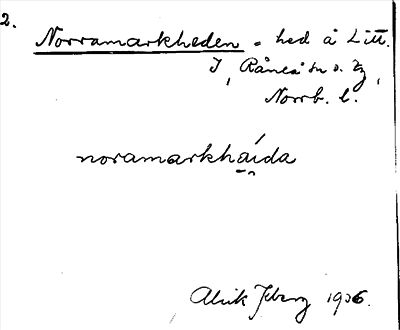 2.
Norramarkheden - hed å Litt.
I, Råneå sn o. tg,
Norrb. l.
noramarkhaída
Alrik 1906.